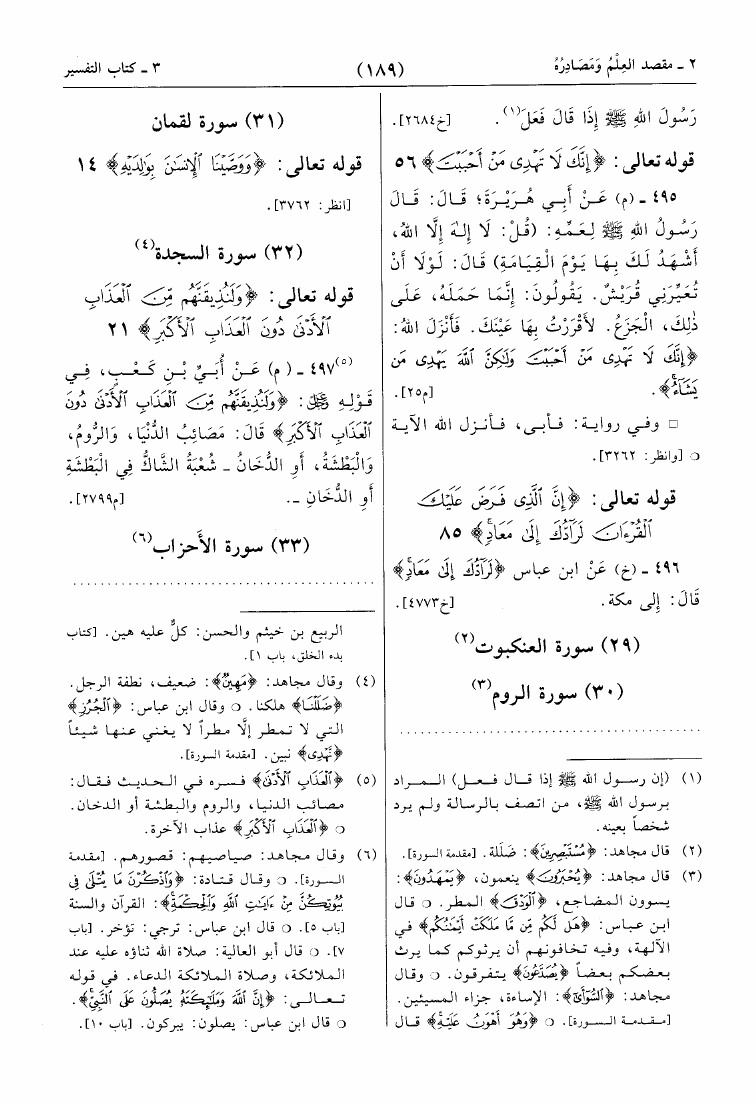 ٢ ـ مقصد العِلْمُ وَمَصَادِرُهُ
(١٨٩)
٣ ـ كتاب التفسير
رَسُولَ اللهِ ﷺ إِذَا قَالَ فَعَلَ(١). [خ٢٦٨٤].
قوله تعالى: ﴿إِنَّكَ لَا تَهْدِى مَنْ أَحْبَبْتَ﴾ ٥٦
٤٩٥ ـ (م) عَنْ أَبِي هُرَيْرَةَ؛ قَالَ: قَالَ
رَسُولُ اللهِ ﷺ لِعَمِّهِ: (قُلْ: لَا إِلهَ إِلَّا اللهُ،
أَشْهَدُ لَكَ بِهَا يَوْمَ الْقِيَامَةِ) قَالَ: لَوْلَا أَنْ
تُعَيِّرَنِي قُرَيْشٌ. يَقُولُونَ: إِنَّمَا حَمَلَهُ، عَلَى
ذٰلِكَ، الْجَزَعُ. لأَقْرَرْتُ بِهَا عَيْنَكَ. فَأَنْزَلَ اللهُ:
﴿إِنَّكَ لَا تَهْدِى مَنْ أَحْبَبْتَ وَلَٰكِنَّ ٱللَّهَ يَهْدِى مَن
يَشَآءُ﴾. [م٢٥].
□ وفي رواية: فـأبـى، فـأنـزل الله الآيـة
○ [وانظر: ٣٢٦٢].
قوله تعالى: ﴿إِنَّ ٱلَّذِى فَرَضَ عَلَيْكَ
ٱلْقُرْءَانَ لَرَآدُّكَ إِلَىٰ مَعَادٍ﴾ ٨٥
٤٩٦ ـ (خ) عَنْ ابن عباس ﴿لَرَآدُّكَ إِلَىٰ مَعَادٍ﴾
قَالَ: إلى مكة. [خ٤٧٧٣].
(٢٩) سورة العنكبوت(٢)
(٣٠) سورة الروم(٣)
(١) (إن رسول الله ﷺ إذا قال فعل) المراد
برسول الله ﷺ، من اتصف بالرسالة ولم يرد
شخصاً بعينه.
(٢) قال مجاهد: ﴿مُسْتَبْصِرِينَ﴾: ضَلَلة. [مقدمة السورة].
(٣) قال مجاهد: ﴿يُحْبَرُونَ﴾ ينعمون، ﴿يَمْهَدُونَ﴾:
يسوون المضاجع، ﴿ٱلْوَدْقَ﴾ المطر. ○ قال
ابن عباس: ﴿هَل لَّكُم مِّن مَّا مَلَكَتْ أَيْمَٰنُكُم﴾ في
الآلهة، وفيه تخافونهم أن يرثوكم كما يرث
بعضكم بعضاً ﴿يَصَّدَّعُونَ﴾ يتفرقون. ○ وقال
مجاهد: ﴿ٱلسُّوٓأَىٰٓ﴾: الإساءة، جزاء المسيئين.
[مقدمة السورة]. ○ ﴿وَهُوَ أَهْوَنُ عَلَيْهِ﴾ قال
(٣١) سورة لقمان
قوله تعالى: ﴿وَوَصَّيْنَا ٱلْإِنسَٰنَ بِوَٰلِدَيْهِ﴾ ١٤
[انظر: ٣٧٦٢].
(٣٢) سورة السجدة(٤)
قوله تعالى: ﴿وَلَنُذِيقَنَّهُم مِّنَ ٱلْعَذَابِ
ٱلْأَدْنَىٰ دُونَ ٱلْعَذَابِ ٱلْأَكْبَرِ﴾ ٢١
٤٩٧(٥) ـ (م) عَنْ أُبَيِّ بْنِ كَعْبٍ، فِي
قَوْلِهِ ﷿: ﴿وَلَنُذِيقَنَّهُم مِّنَ ٱلْعَذَابِ ٱلْأَدْنَىٰ دُونَ
ٱلْعَذَابِ ٱلْأَكْبَرِ﴾ قَالَ: مَصَائِبُ الدُّنْيَا، وَالرُّومُ،
وَالْبَطْشَةُ، أَوِ الدُّخَانُ ـ شُعْبَةُ الشَّاكُّ فِي الْبَطْشَةِ
أَوِ الدُّخَانِ ـ. [م٢٧٩٩].
(٣٣) سورة الأحزاب(٦)
الربيع بن خيثم والحسن: كلٌّ عليه هين. [كتاب
بدء الخلق، باب ١].
(٤) وقال مجاهد: ﴿مَهِينٍ﴾: ضعيف، نطفة الرجل.
﴿ضَلَلْنَا﴾ هلكنا. ○ وقال ابن عباس: ﴿ٱلْجُرُزِ﴾
التي لا تمطر إلَّا مطراً لا يغني عنها شيئاً
﴿نَهْدِى﴾ نبين. [مقدمة السورة].
(٥) ﴿ٱلْعَذَابِ ٱلْأَدْنَىٰ﴾ فسره في الحديث فقال:
مصائب الدنيا، والروم والبطشة أو الدخان.
○ ﴿ٱلْعَذَابِ ٱلْأَكْبَرِ﴾ عذاب الآخرة.
(٦) وقال مجاهد: صياصيهم: قصورهم. [مقدمة
السورة]. ○ وقال قتادة: ﴿وَٱذْكُرْنَ مَا يُتْلَىٰ فِى
بُيُوتِكُنَّ مِنْ ءَايَٰتِ ٱللَّهِ وَٱلْحِكْمَةِ﴾: القرآن والسنة
[باب ٥]. ○ قال ابن عباس: ترجي: تؤخر. [باب
٧]. ○ قال أبو العالية: صلاة الله ثناؤه عليه عند
الملائكة، وصلاة الملائكة الدعاء. في قوله
تعالى: ﴿إِنَّ ٱللَّهَ وَمَلَٰٓئِكَتَهُۥ يُصَلُّونَ عَلَى ٱلنَّبِىِّ﴾.
○ قال ابن عباس: يصلون: يبركون. [باب ١٠].